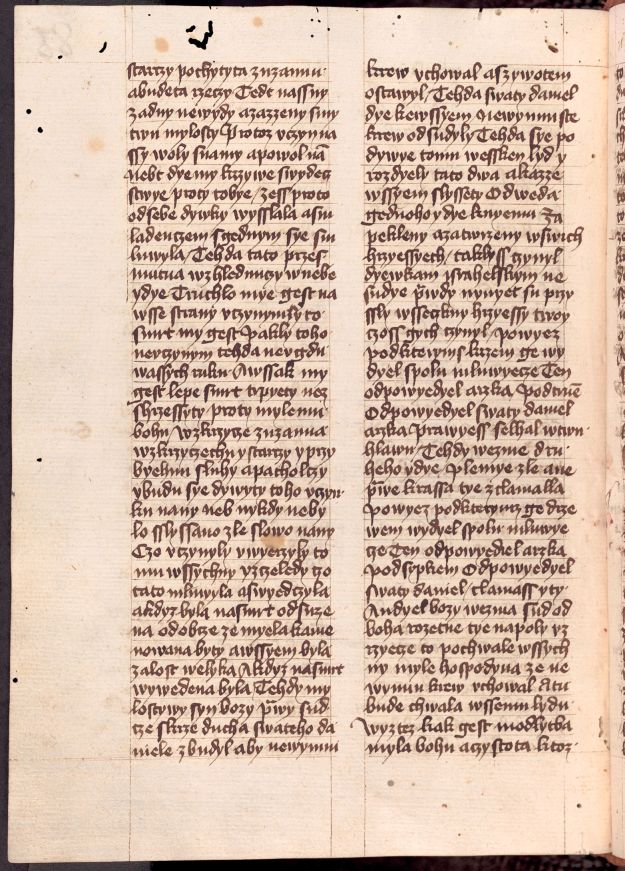 starczy pochytyta zuzannu
abudeta rzeczy Tedt nassmy
zadny newydy azazzeny smy
twu mylosty Protoz vczynna
ssy woly snamy apowol nā
nebt dye my krzywe swydecz
stwye proty tobye zess proto
odsebe dywky wysslala asm
ladenczem sgednym sye sm
luwyla Tehda tato przes
mutna wzhlednuczy wnebe
ydye Truchlo mye gest na
wsse strany vczynymly to
smrt my gest Pakly toho
nevczynym tehda nevgdu
wassych ruku Awssak my
gest lepe smrt trpyety nez
shrzessyty proty mylemu
bohu wzkrzycze zuzanna
wzkrzyczechu y starczy y przy
byehnu sluhy apacholczy
ybudu sye dywyty toho vczyn
ku nany neb nykdy neby
lo slyssano zle slowo nany
Czo vczynyly vwyerzyly to
mu wssychny yzczeledy zo
tato mluwyla aswyedczyla
akdyz byla nasmrt odsuze
na odobrze ze myela kame
nowana byty awssyem byla
zalost welyka Akdyz nasmrt
wywedena byla Tehdy my
lostywy syn bozy prwy sud
cze skrze ducha swateho da
niele zbudyl aby newynnu
krew vchowal aszywotem
ostawyl Tehda swaty daniel
dye kewssyem Newynnu ste
krew odsudyly Tehda sye po
dywye tomu wessken lyd y
rozdyely tato dwa akazze
wssyem slyssety Odweda
gednoho ydye knyemu Za
pekleny azatwrzeny wswich
hrzyessyech taklyss czynyl
dyewkam israhelskym ne
sudye prwdy nynyet su przy
ssly wsseczkny hrzyessy twoy
czoss gych czynyl powyez
podkterym krzem ge wy
dyel spolu mluwyecze Ten
odpowyedyel arzka Podtrnē
Odpowyedyel swaty daniel
arzka Prawyess selhal wtwu
hlawu Tehdy wezme dru
heho ydye Plemye zle ane
prwe krassa tye zclamalla
Powyez podkterym ge drze
wem wydyel spolu mluwye
cze Ten odpowyediel arzka
Podsypkem Odpowyedyel
swaty daniel clamass yty
Andyel bozy wezma sud od
boha rozetne tye napoly yz
rzyecze to pochwale wssych
ny myle hospodyna ze ne
wynnu krew vchowal Atu
bude chwala wssemu lydu
Wyzte kak gest modlytba
myla bohu aczystota ktoz